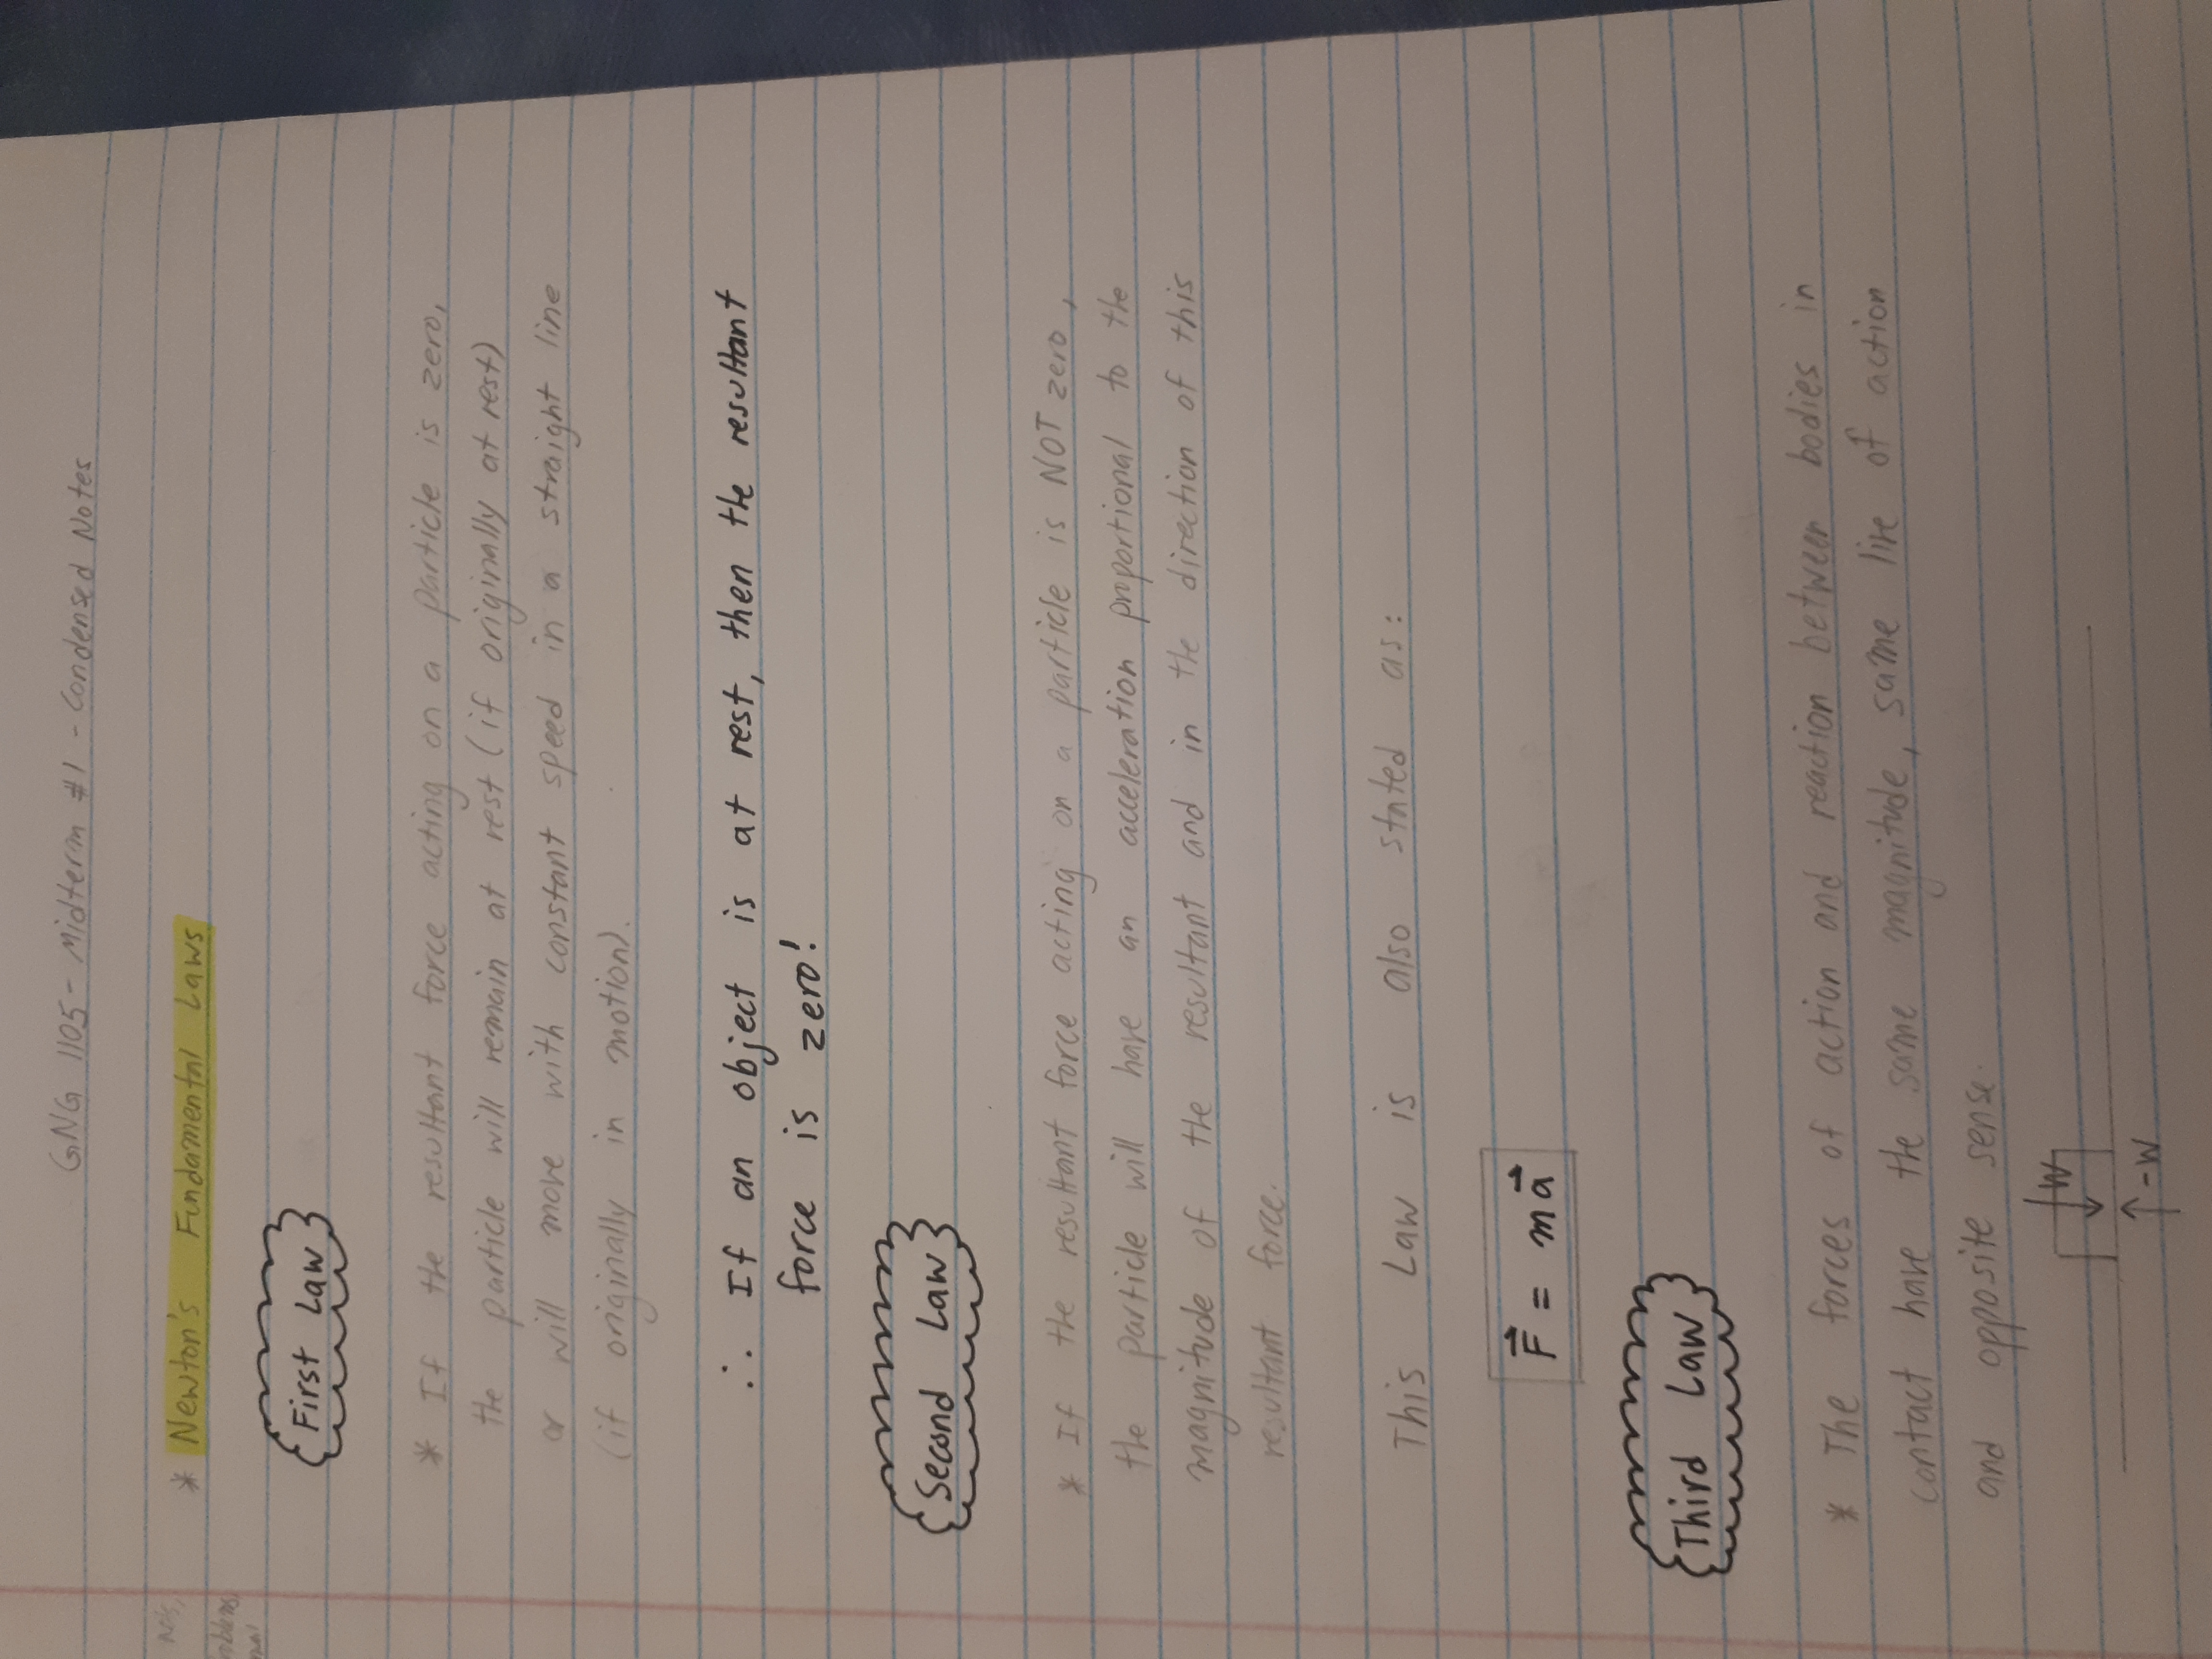 GNG 1105 - Midterm #1 - Condensed Notes
* Newton's Fundamental Laws
First Law
* If the resultant force acting on a particle is zero,
the particle will remain at rest (if originally at rest)
or will move with constant speed in a straight line
(if originally in motion).
∴ If an object is at rest, then the resultant
force is zero!
Second Law
* If the resultant force acting on a particle is NOT zero,
the particle will have an acceleration proportional to the
magnitude of the resultant and in the direction of this
resultant force.
This Law is also stated as:
F⃗ = ma⃗
Third Law
* The forces of action and reaction between bodies in
contact have the same magnitude, same line of action
and opposite sense.
W
-W